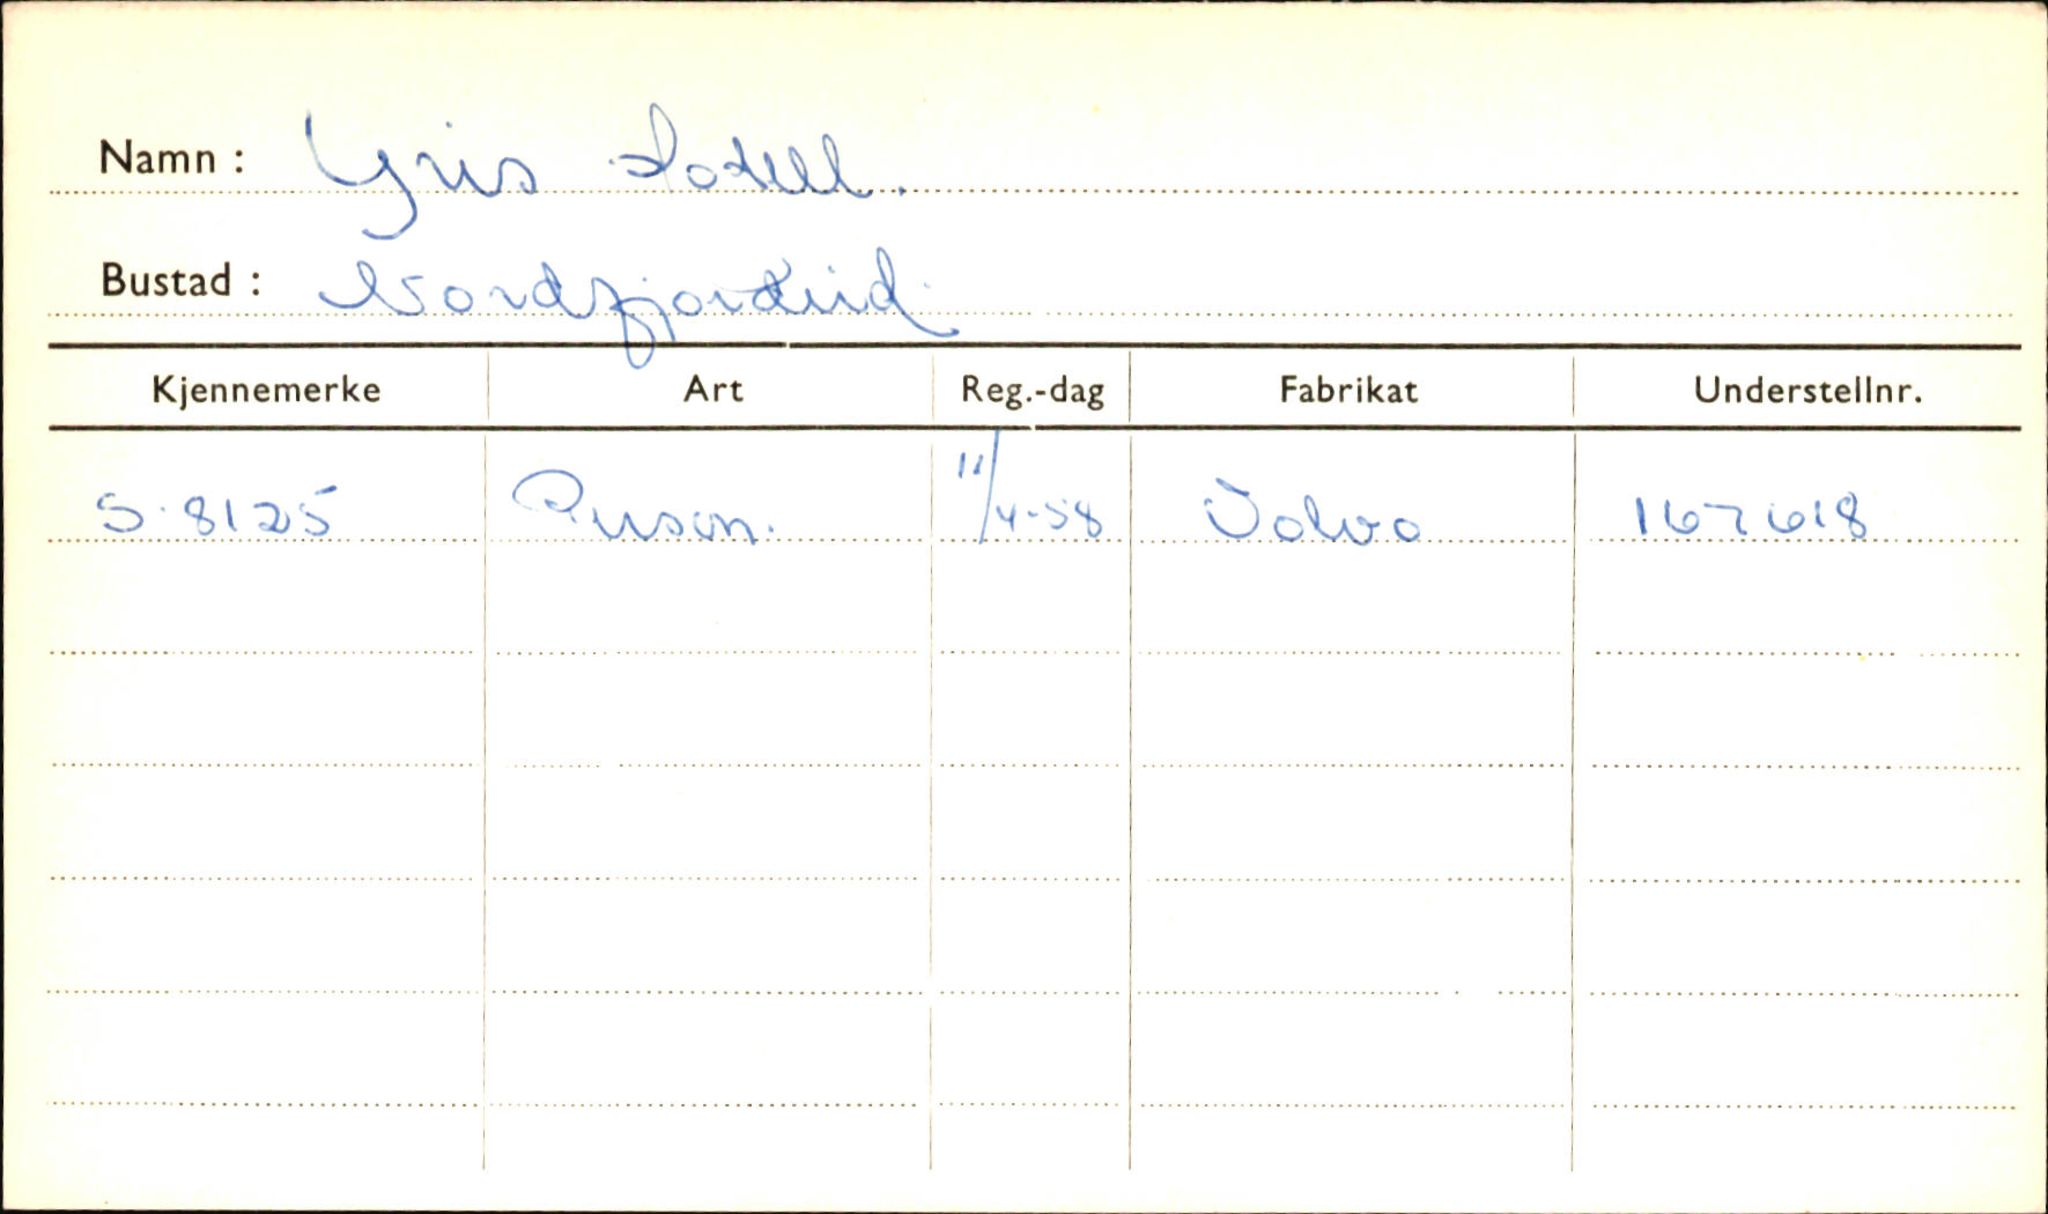 Namn : Yris Hotell.
Bustad : Nordfjordeid.
Kjennemerke Art Reg.-dag Fabrikat Understellnr.
S-8125 Person. 11/4-58 Volvo 167618